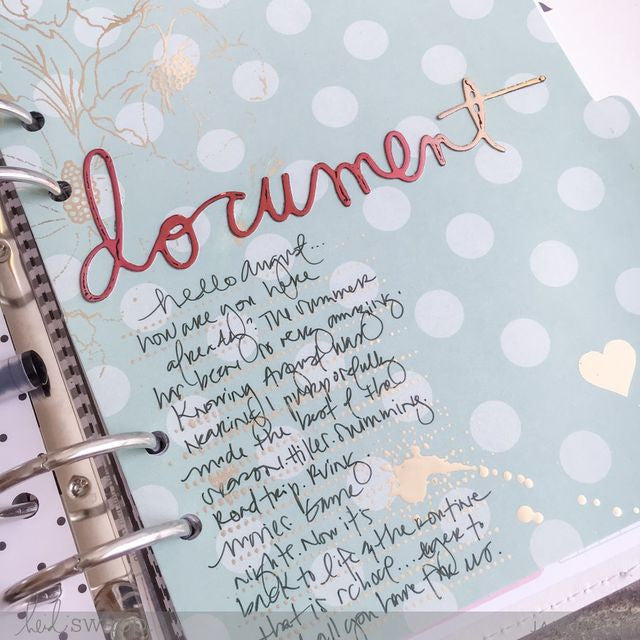 document
hello august...
how are you here
already. The summer
has been so very amazing.
Knowing August was
nearing I purposefully
made the best of the
season. Hikes. Swimming.
Road trip. Biking.
Movies. Game
nights. Now it's
back to life & the routine
that is school... eager to
all you have for us.